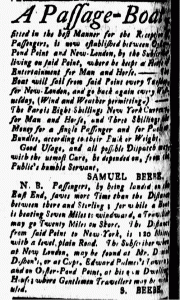 A Passage-Boat
fitted in the best Manner for the Reception
Passengers, is now established between O
Pond Point and New-London, by the Subs
living on said Point, where he keeps a H
Entertainment for Man and Horse.
Boat will sail from said Point every
for New-London, and go back again every W
nesday, (Wind and Weather permitting)
The Fare is Eight Shillings New York Curren
for Man and Horse, and Three Shillings
Money for a single Passenger and for Pac
Bundles, according to their Bulk or Weight.
Good Usage, and all possible Dispatch
with the utmost Care, be depended on, from
Public's humble Servant,
SAMUEL BEEBE.
N. B. Passengers, by being landed on
East End, saves more Time than the Distance
between there and Sterling; for while a Boat
is beating Seven Miles to windward, a Traveller
may go Twenty Miles on Shore. The Distance
from said Point to New York, is 120 Miles
with a level, plain Road. The Subscriber when
at New London, may be found at Mr. D
at Capt. Edward Palmer's
and on Oyster-Pond Point, at his Dwelling
House; where Gentlemen Travellers may be
S. BEEBE.